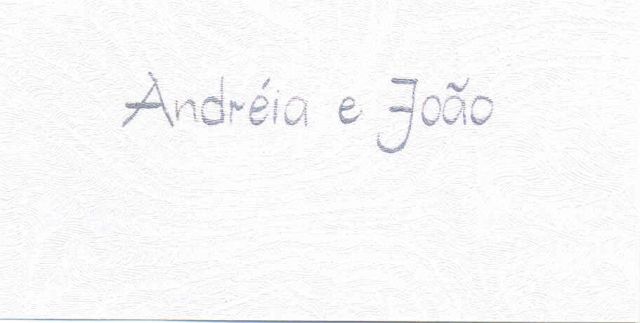 Andréia e João